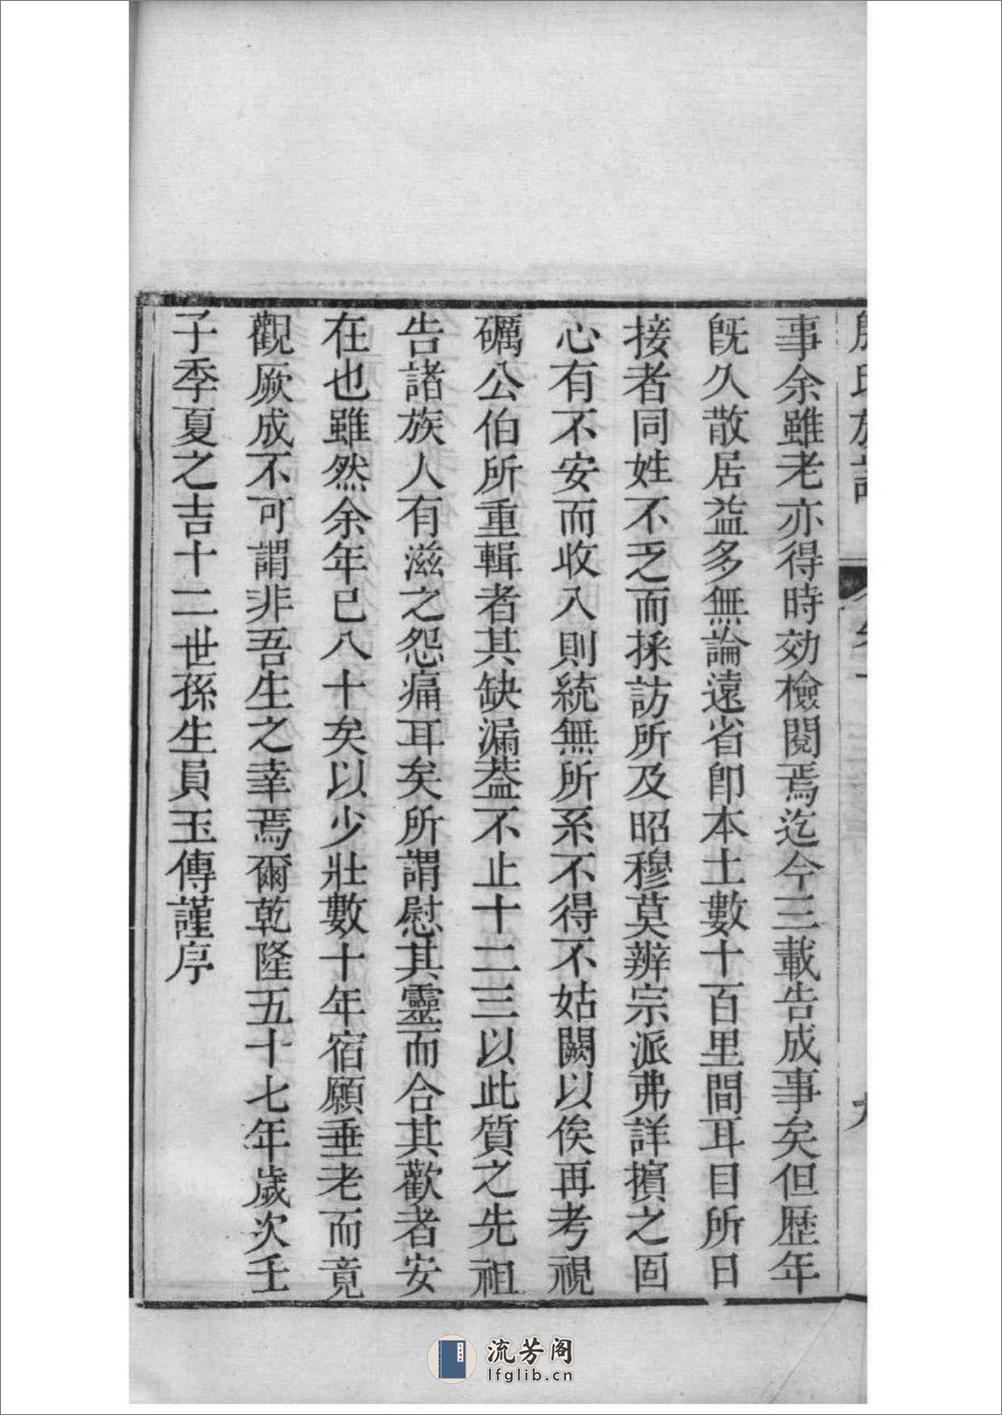 事余雖老亦得時效檢閱焉迄今三載告成事矣但歷年
旣久散居益多無論遠省卽本土數十百里間耳目所日
接者同姓不乏而採訪所及昭穆莫辨宗派弗詳擯之固
心有不安而收入則統無所系不得不姑闕以俟再考視
礪公伯所重輯者其缺漏蓋不止十二三以此質之先祖
告諸族人有滋之怨痛耳矣所謂慰其靈而合其歡者安
在也雖然余年已八十矣以少壯數十年宿願垂老而竟
觀厥成不可謂非吾生之幸焉爾乾隆五十七年歲次壬
子季夏之吉十二世孫生員玉傳謹序
流芳阁
lfglib.cn